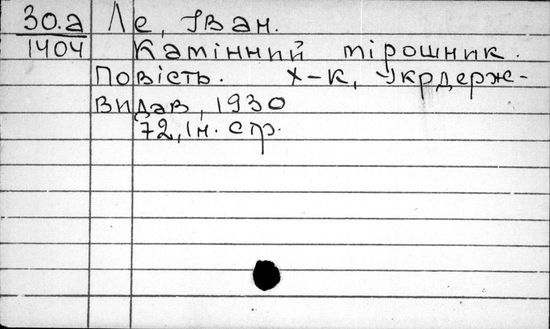 30.а Ле, Іван.
1404 Камінний мірошник.
Повість. Х-к, Укрдерж-
видав, 1930
72, Ін. стр.